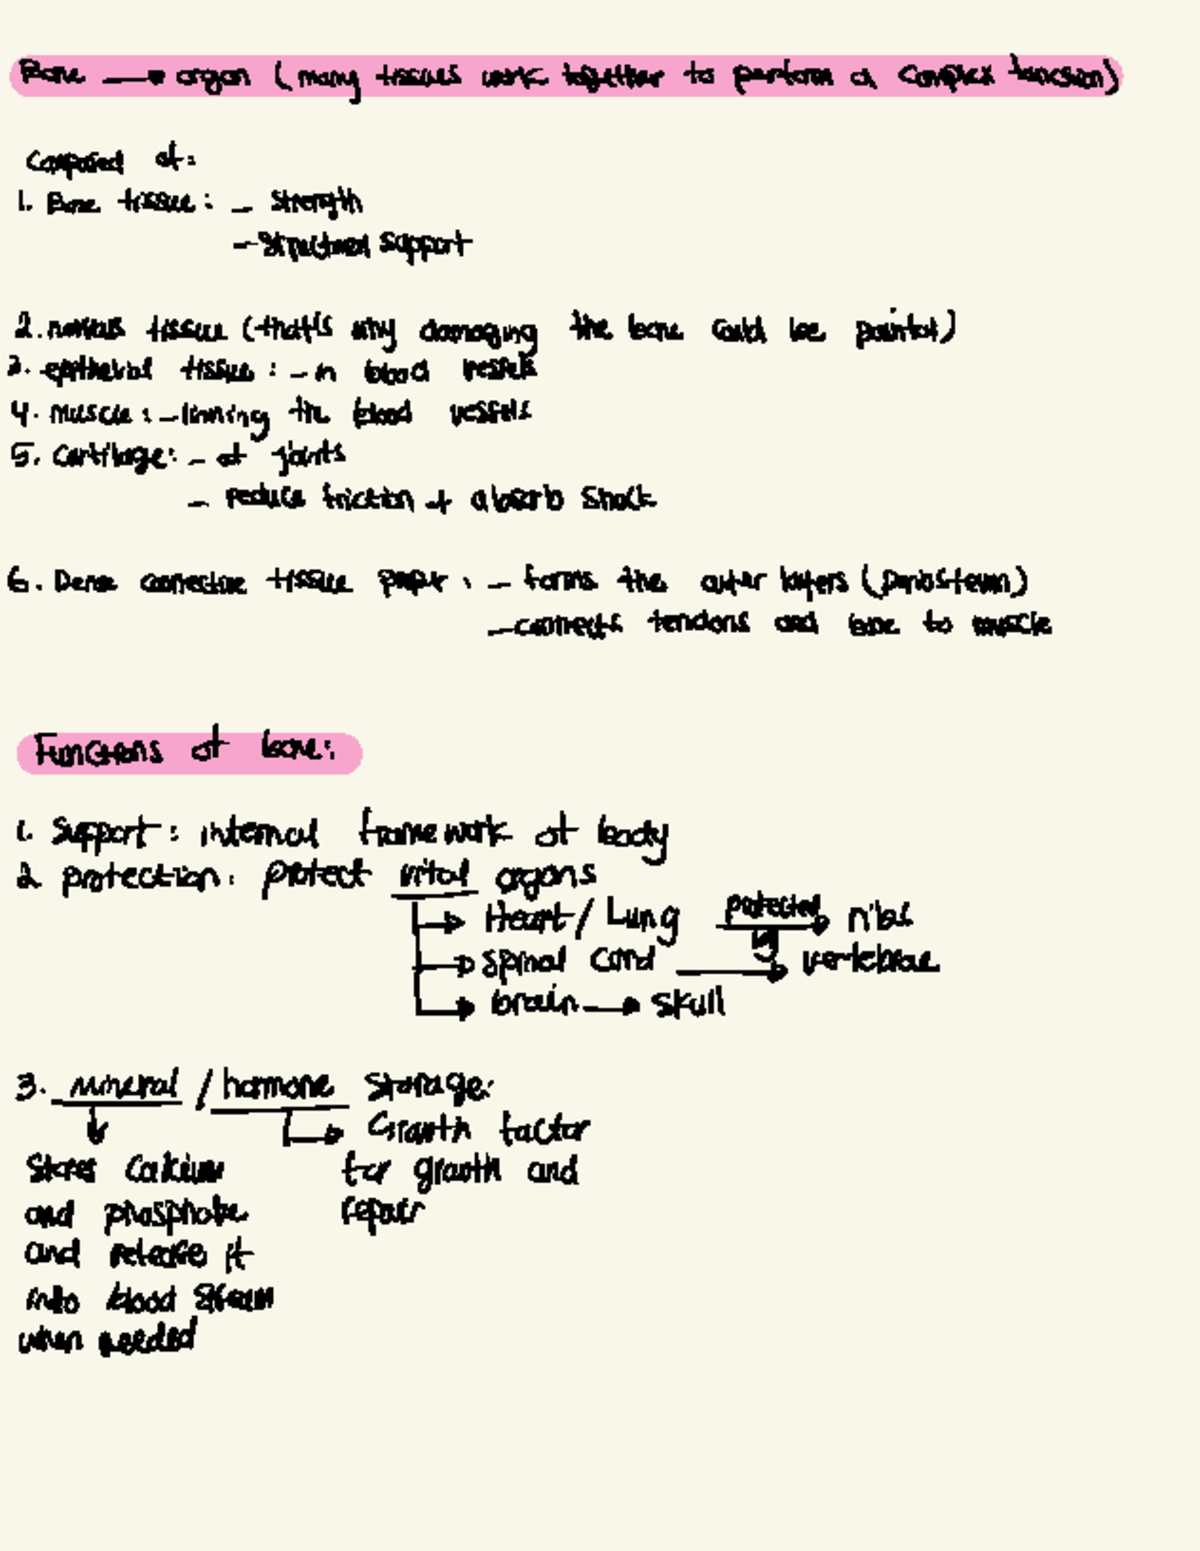 Bone → organ (many tissues work together to perform a complex function)
Composed of:
1. Bone tissue: - Strength
- Structural support
2. nervous tissue (that's why damaging the bone could be painful)
3. epithelial tissue: - in blood vessels
4. muscle: - linning the blood vessels
5. Cartilage: - at joints
- reduce friction + absorb shock
6. Dense connective tissue proper: - forms the outer layers (periosteum)
- connects tendons and bone to muscle
Functions of bone:
1. Support: internal framework of body
2. protection: protect vital organs
→ Heart / Lung protected by → ribs
→ spinal cord → vertebrae
→ brain → skull
3. mineral / hormone storage:
→ Growth factor
for growth and
repair
Stores Calcium
and phosphate
and release it
into blood stream
when needed